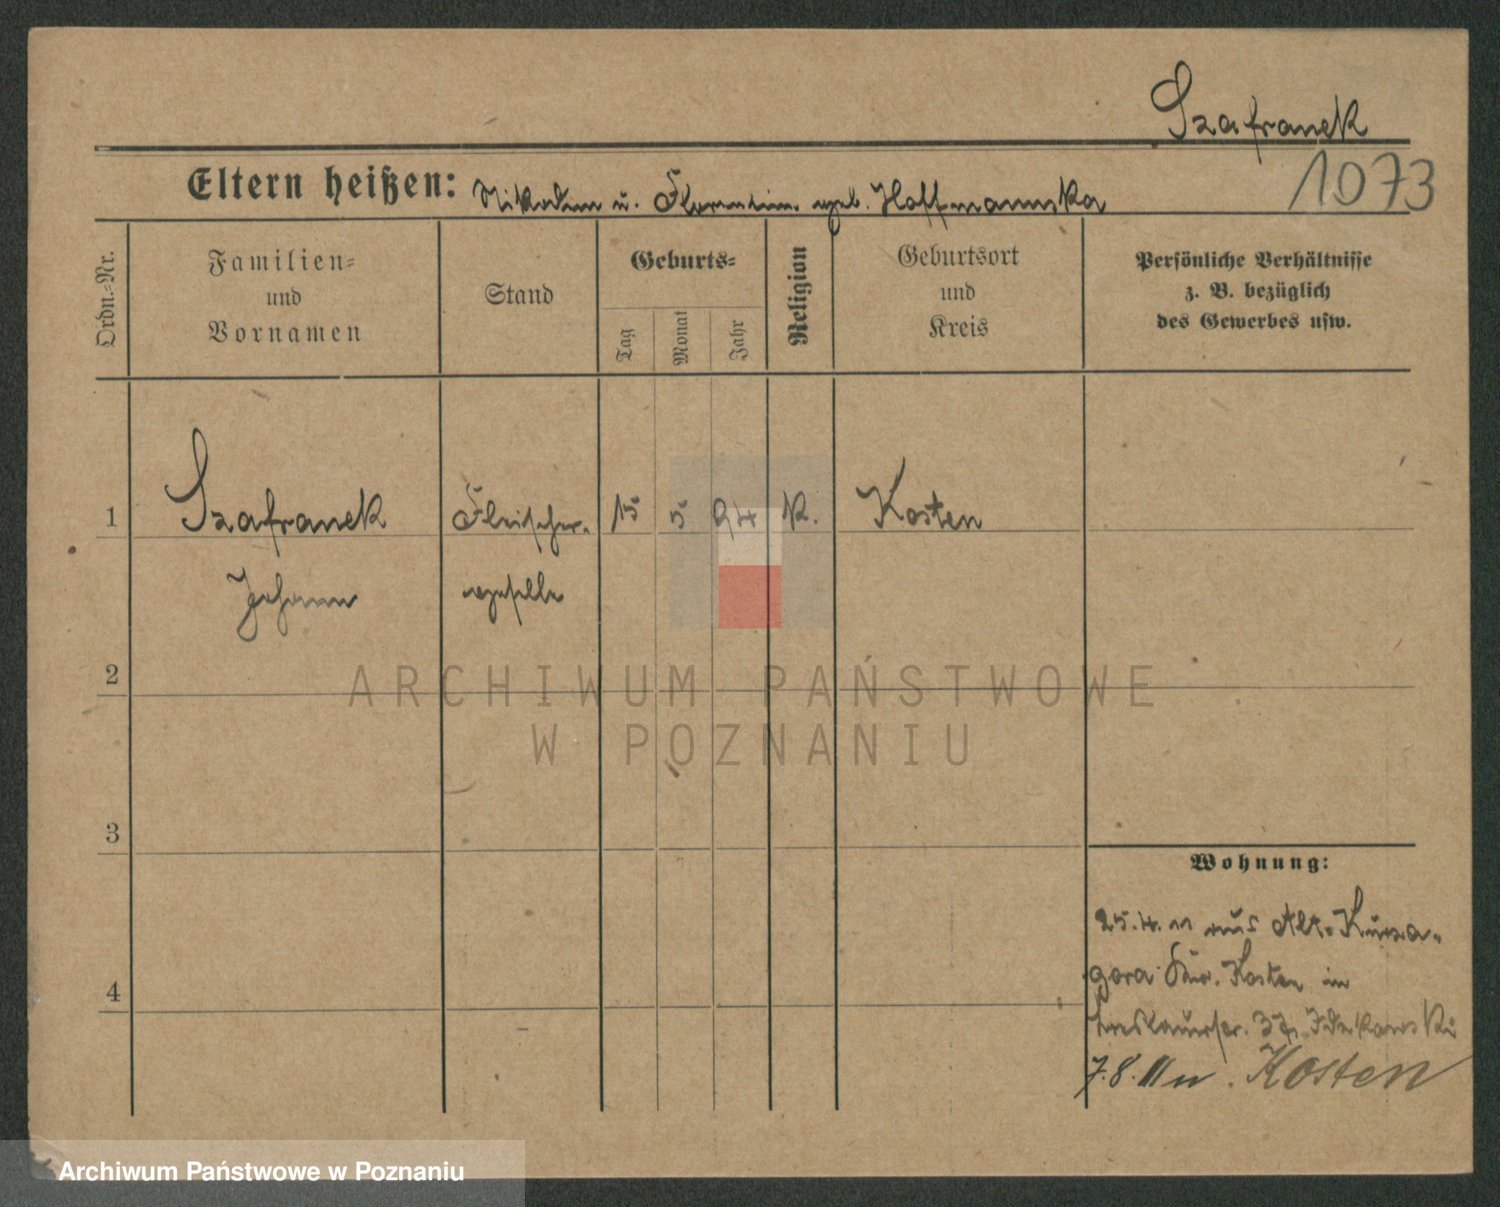 Szafranek
Eltern heißen: Nikodem u. Florentine geb. Hoffmannska
1073
Ordn.=Nr.
Familien=
und
Vornamen
Stand
Geburts=
Tag
Monat
Jahr
Religion
Geburtsort
und
Kreis
Persönliche Verhältnisse
z. B. bezüglich
des Gewerbes usw.
1 Szafranek Fleischer- 15 5 94 K. Kosten
Johann geselle
2
3
4
Wohnung:
25.4.11 aus Alt-Kurza-
gora Kr. Kosten in
37,
7.8.11 n. Kosten
ARCHIWUM PAŃSTWOWE
W POZNANIU
Archiwum Państwowe w Poznaniu